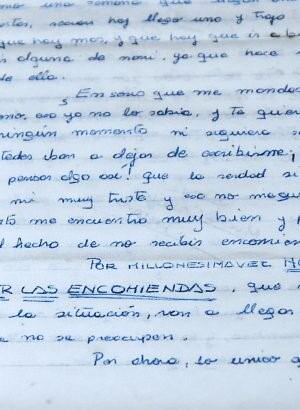 uno semana que llegan
recien hoy llego uno y trajo
que hay mas, y que hay que ir a b
s alguna de noni, ya que hace
de ella.
En serio que me manda
eso yo no lo sabia, y te quier
ningún momento ni siquiera s
tedes iban a dejar de escribirme;
pensar algo asi; que la verdad si
mi muy triste y eso no me gus
me encuentro muy bien y
l hecho de no recibir encomien
POR MILLONESIMA VEZ NO
R LAS ENCOMIENDAS, que
la situación, van a llegar
e no se preocupen.
Por ahora, lo unico q